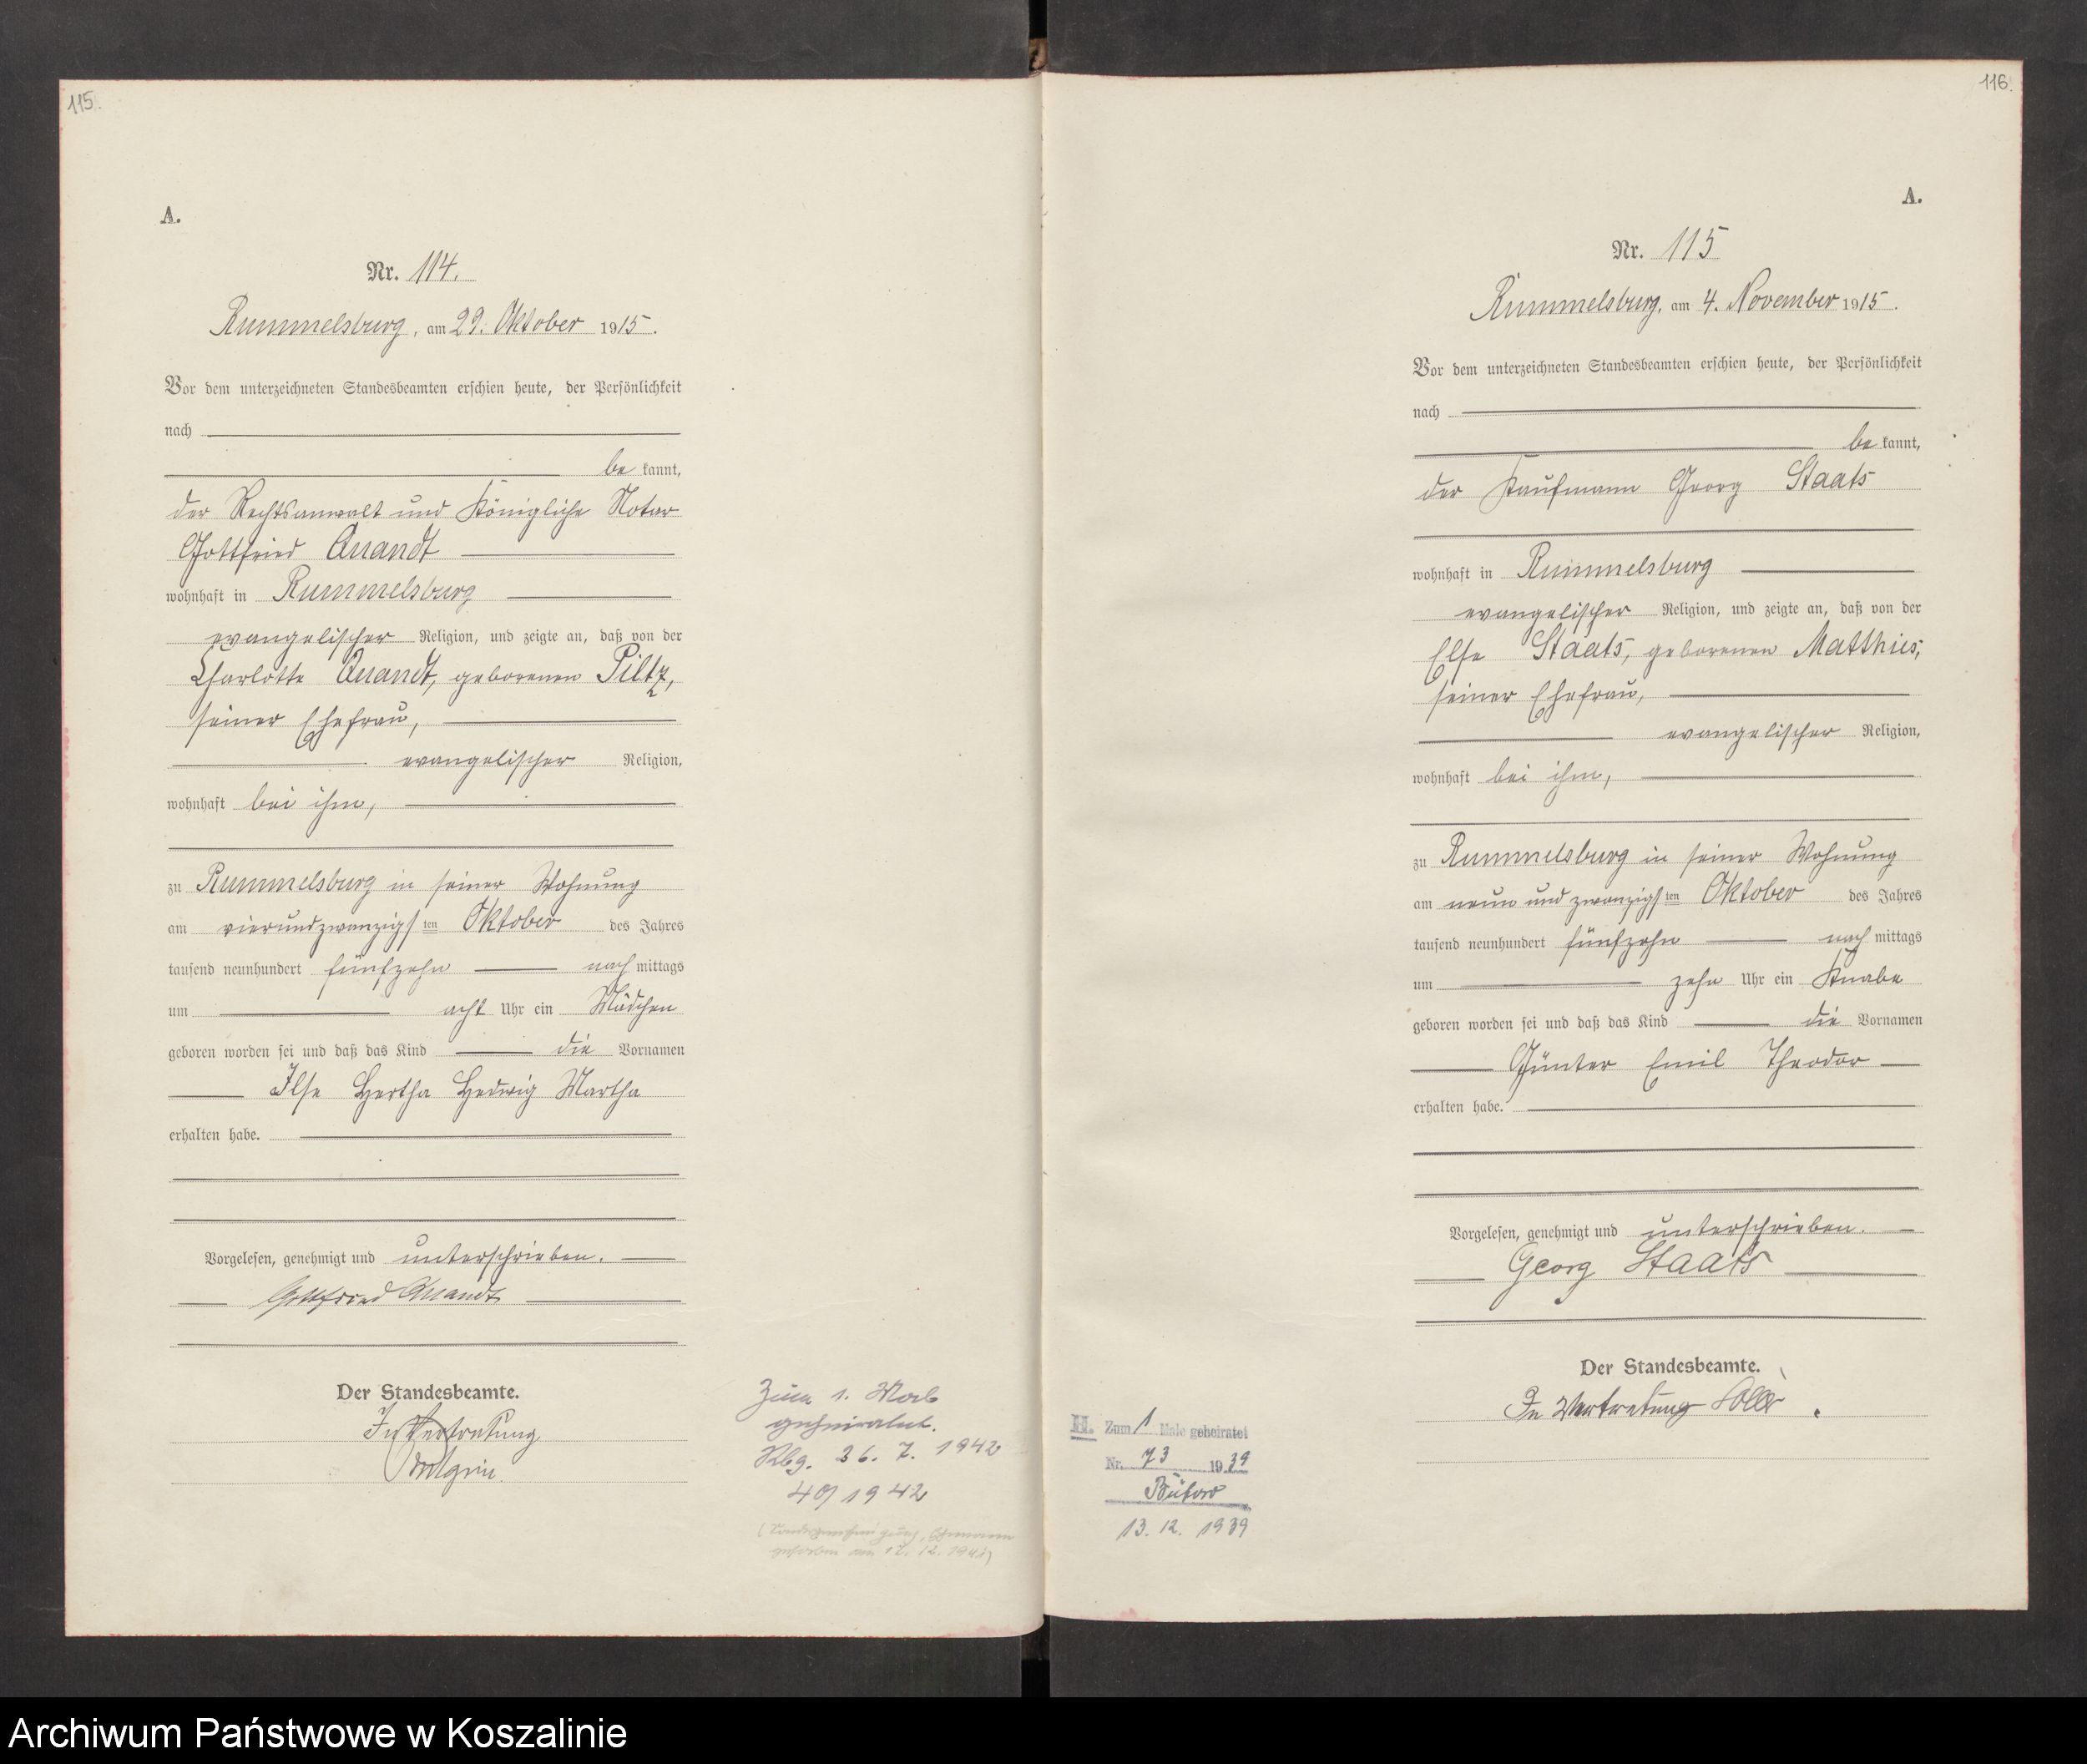 115.
A.
Nr. 114.
Rummelsburg, am 29. Oktober 1915.
Vor dem unterzeichneten Standesbeamten erschien heute, der Persönlichkeit
nach
be kannt,
der Rechtsanwalt und Königliche Notar
Gottfried Quandt
wohnhaft in Rummelsburg
evangelischer Religion, und zeigte an, daß von der
Charlotte Quandt, geborenen Piltz,
seiner Ehefrau,
evangelischer Religion,
wohnhaft bei ihm,
zu Rummelsburg in seiner Wohnung
am vierundzwanzigsten Oktober des Jahres
tausend neunhundert fünfzehn nachmittags
um acht Uhr ein Mädchen
geboren worden sei und daß das Kind die Vornamen
Ilse Hertha Hedwig Martha
erhalten habe.
Vorgelesen, genehmigt und unterschrieben.
Gottfried Quandt
Der Standesbeamte.
In Vertretung
Zum 1. Mal
geheiratet.
Rbg. 26. 7. 1942
40/1942
gestorben am 12. 12. 1941)
116.
A.
Nr. 115
Rummelsburg, am 4. November 1915.
Vor dem unterzeichneten Standesbeamten erschien heute, der Persönlichkeit
nach
be kannt,
der Kaufmann Georg Staats
wohnhaft in Rummelsburg
evangelischer Religion, und zeigte an, daß von der
Else Staats, geborenen Matthies,
seiner Ehefrau,
evangelischer Religion,
wohnhaft bei ihm,
zu Rummelsburg in seiner Wohnung
am neunundzwanzigsten Oktober des Jahres
tausend neunhundert fünfzehn nachmittags
um zehn Uhr ein Knabe
geboren worden sei und daß das Kind die Vornamen
Günter Emil Theodor
erhalten habe.
Vorgelesen, genehmigt und unterschrieben.
Georg Staats
Der Standesbeamte.
In Vertretung
H. Zum 1 Male geheiratet
Nr. 73 1939
Bütow
13. 12. 1939
Archiwum Państwowe w Koszalinie